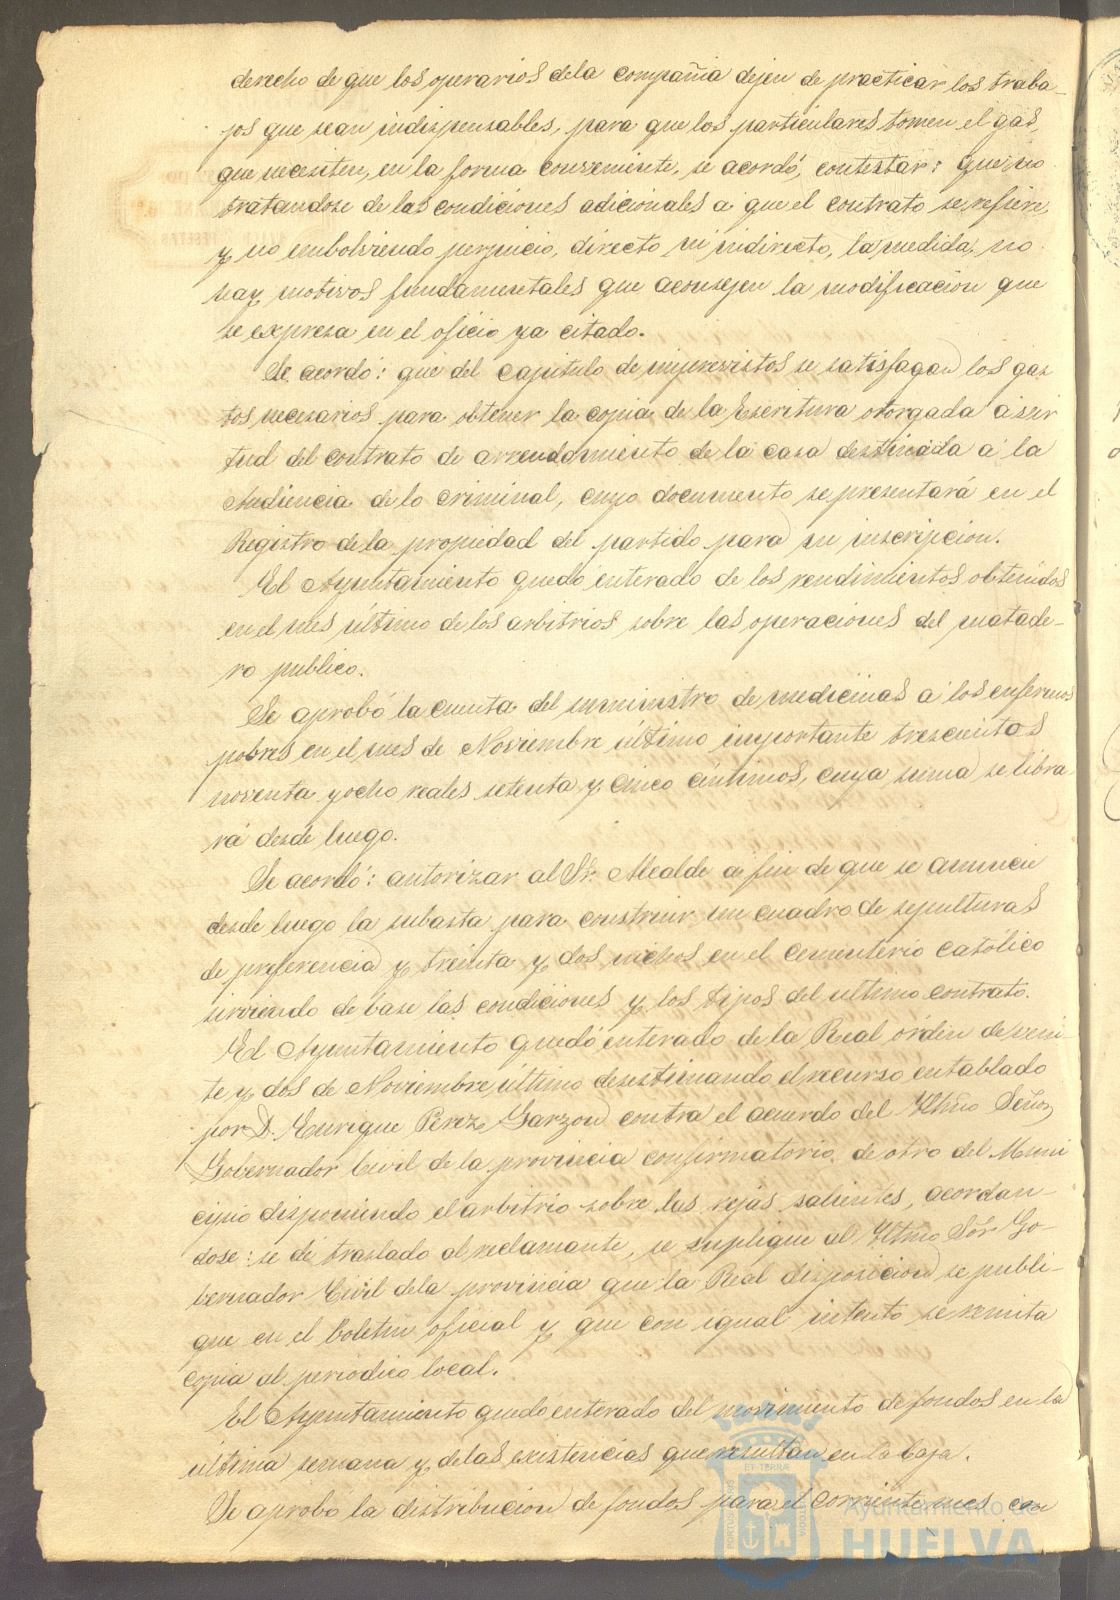 derecho de que los operarios dela compañia dejen de practicar los traba-
jos que sean indispensables, para que los particulares tomen el gas,
que necesiten, en la forma conveniente, se acordó, contestar: que no
tratandose de las condiciones adicionales a que el contrato se refiere,
y no embolviendo perjuicio, directo ni indirecto, la medida, no
hay motivos fundamentales que aconsejen la modificacion que
se expresa en el oficio ya citado.
Se acordó: que del capitulo de imprevistos se satisfagan los gas
tos necesarios para obtener la copia de la Escritura otorgada á vir
tud del contrato de arrendamiento de la casa destinada á la
Audiencia de lo criminal, cuyo documento se presentará en el
Registro de la propiedad del partido para su inscripcion.
El Ayuntamiento quedó enterado de los rendimientos obtenidos
en el mes último de los arbitrios sobre las operaciones del matade-
ro publico.
Se aprobó la cuenta del suministro de medicinas á los enfermos
pobres en el mes de Noviembre último importante trescientos
noventa y ocho reales setenta y cinco céntimos, cuya suma se libra
rá desde luego.
Se acordó: autorizar al Sr. Alcalde a fin de que se anuncie
desde luego la subasta para construir un cuadro de sepulturas
de preferencia y treinta y dos nichos en el cementerio católico
sirviendo de base las condiciones y los tipos del ultimo contrato.
El Ayuntamiento quedó enterado de la Real órden de vein-
te y dos de Noviembre último desestimando el recurso entablado
por D. Enrique Perez Garzon contra el acuerdo del Iltmo Señor
Gobernador Civil de la provincia confirmatorio de otro del Muni
cipio disponiendo el arbitrio sobre las rejas salientes, acordan-
dose: se dé traslado al reclamante, se suplique al Iltmo Sõr Go-
bernador Civil dela provincia que la Real disposicion se publi-
que en el boletin oficial y que con igual intento se remita
copia al periódico local.
El Ayuntamiento quedó enterado del movimiento de fondos en la
última semana y delas existencias que resultan en la Caja.
Se aprobó la distribucion de fondos para el corriente mes con
Ayuntamiento de
HUELVA